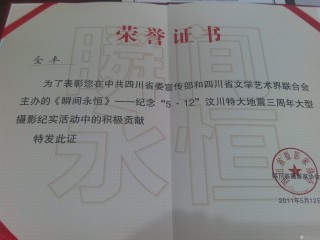 荣誉证书
金丰
为了表彰您在中共四川省委宣传部和四川省文学艺术界联合会
主办的《瞬间永恒》——纪念“5·12”汶川特大地震三周年大型
摄影纪实活动中的积极贡献
特发此证
瞬间
永恒
四川省摄影家协会
2011年5月12日